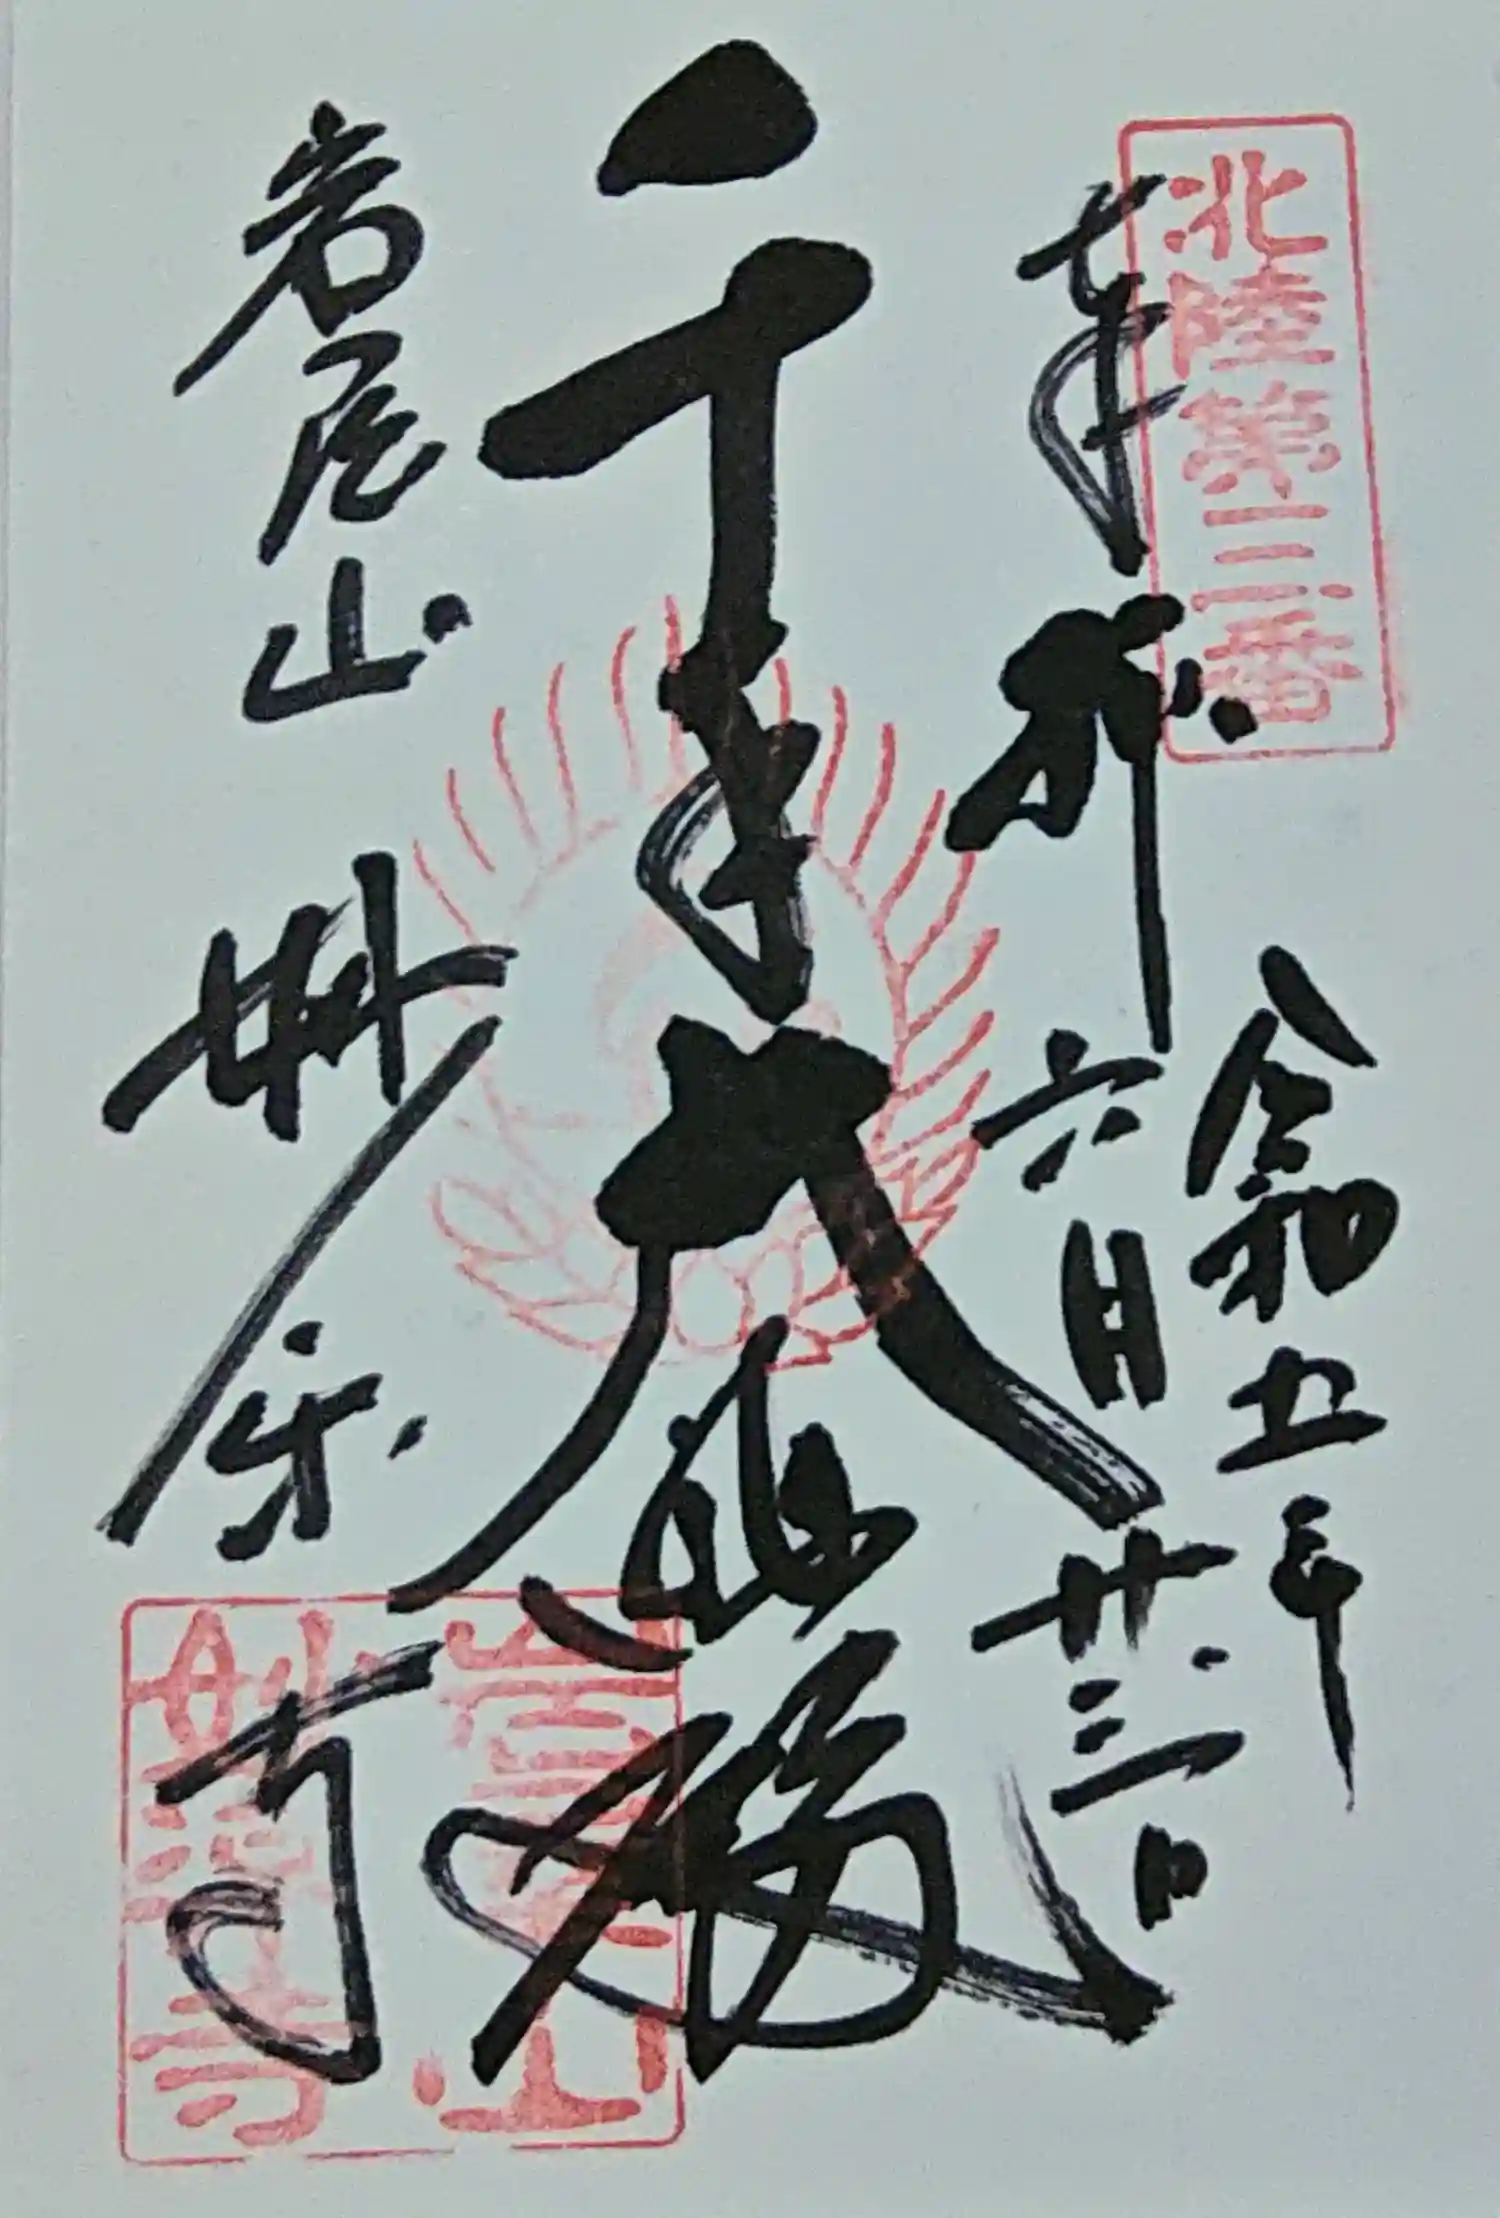 北陸第三番
奉拝
令和五年
六月廿三日
千手大悲殿
岩屋山
妙楽寺
岩屋山
妙楽寺